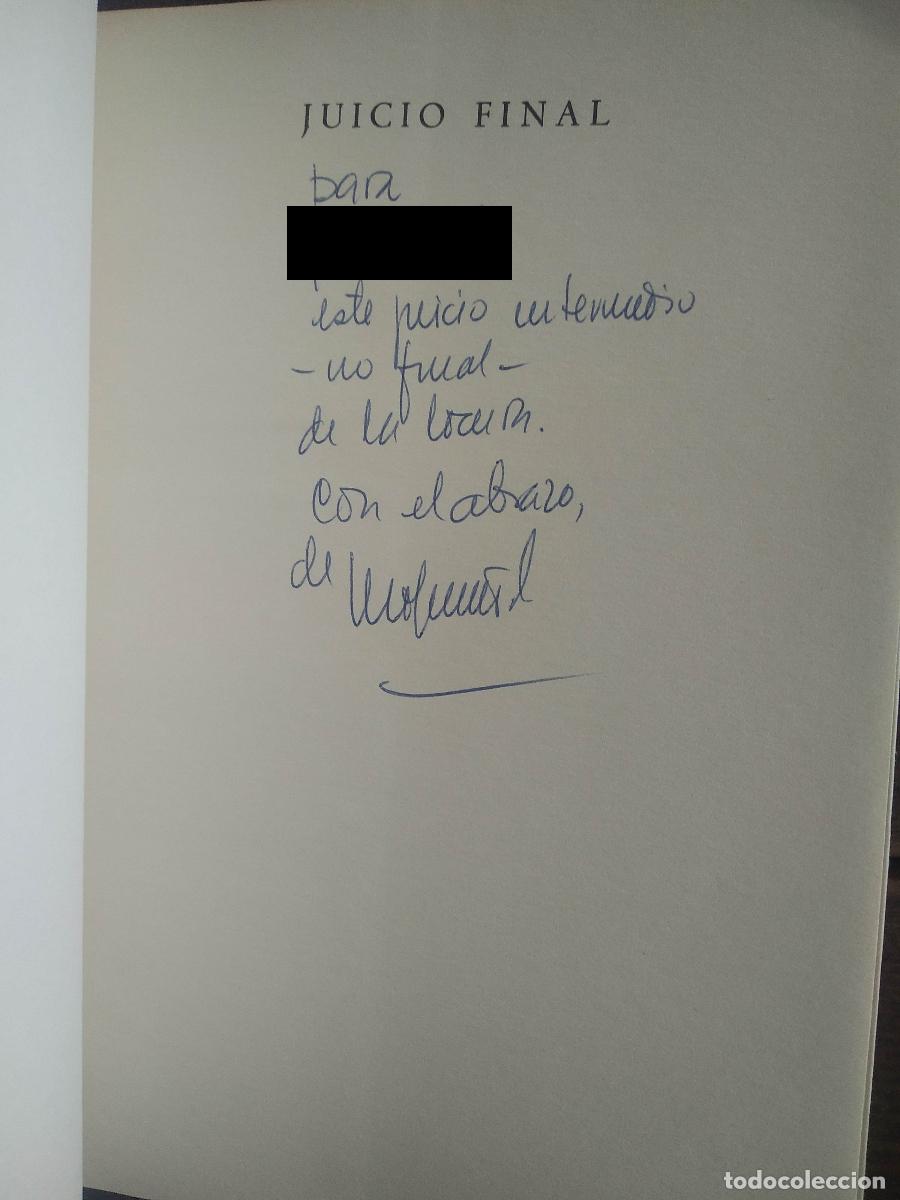 JUICIO FINAL
para
este juicio intermedio
- no final -
de la locura.
Con el abrazo,
de
todocoleccion